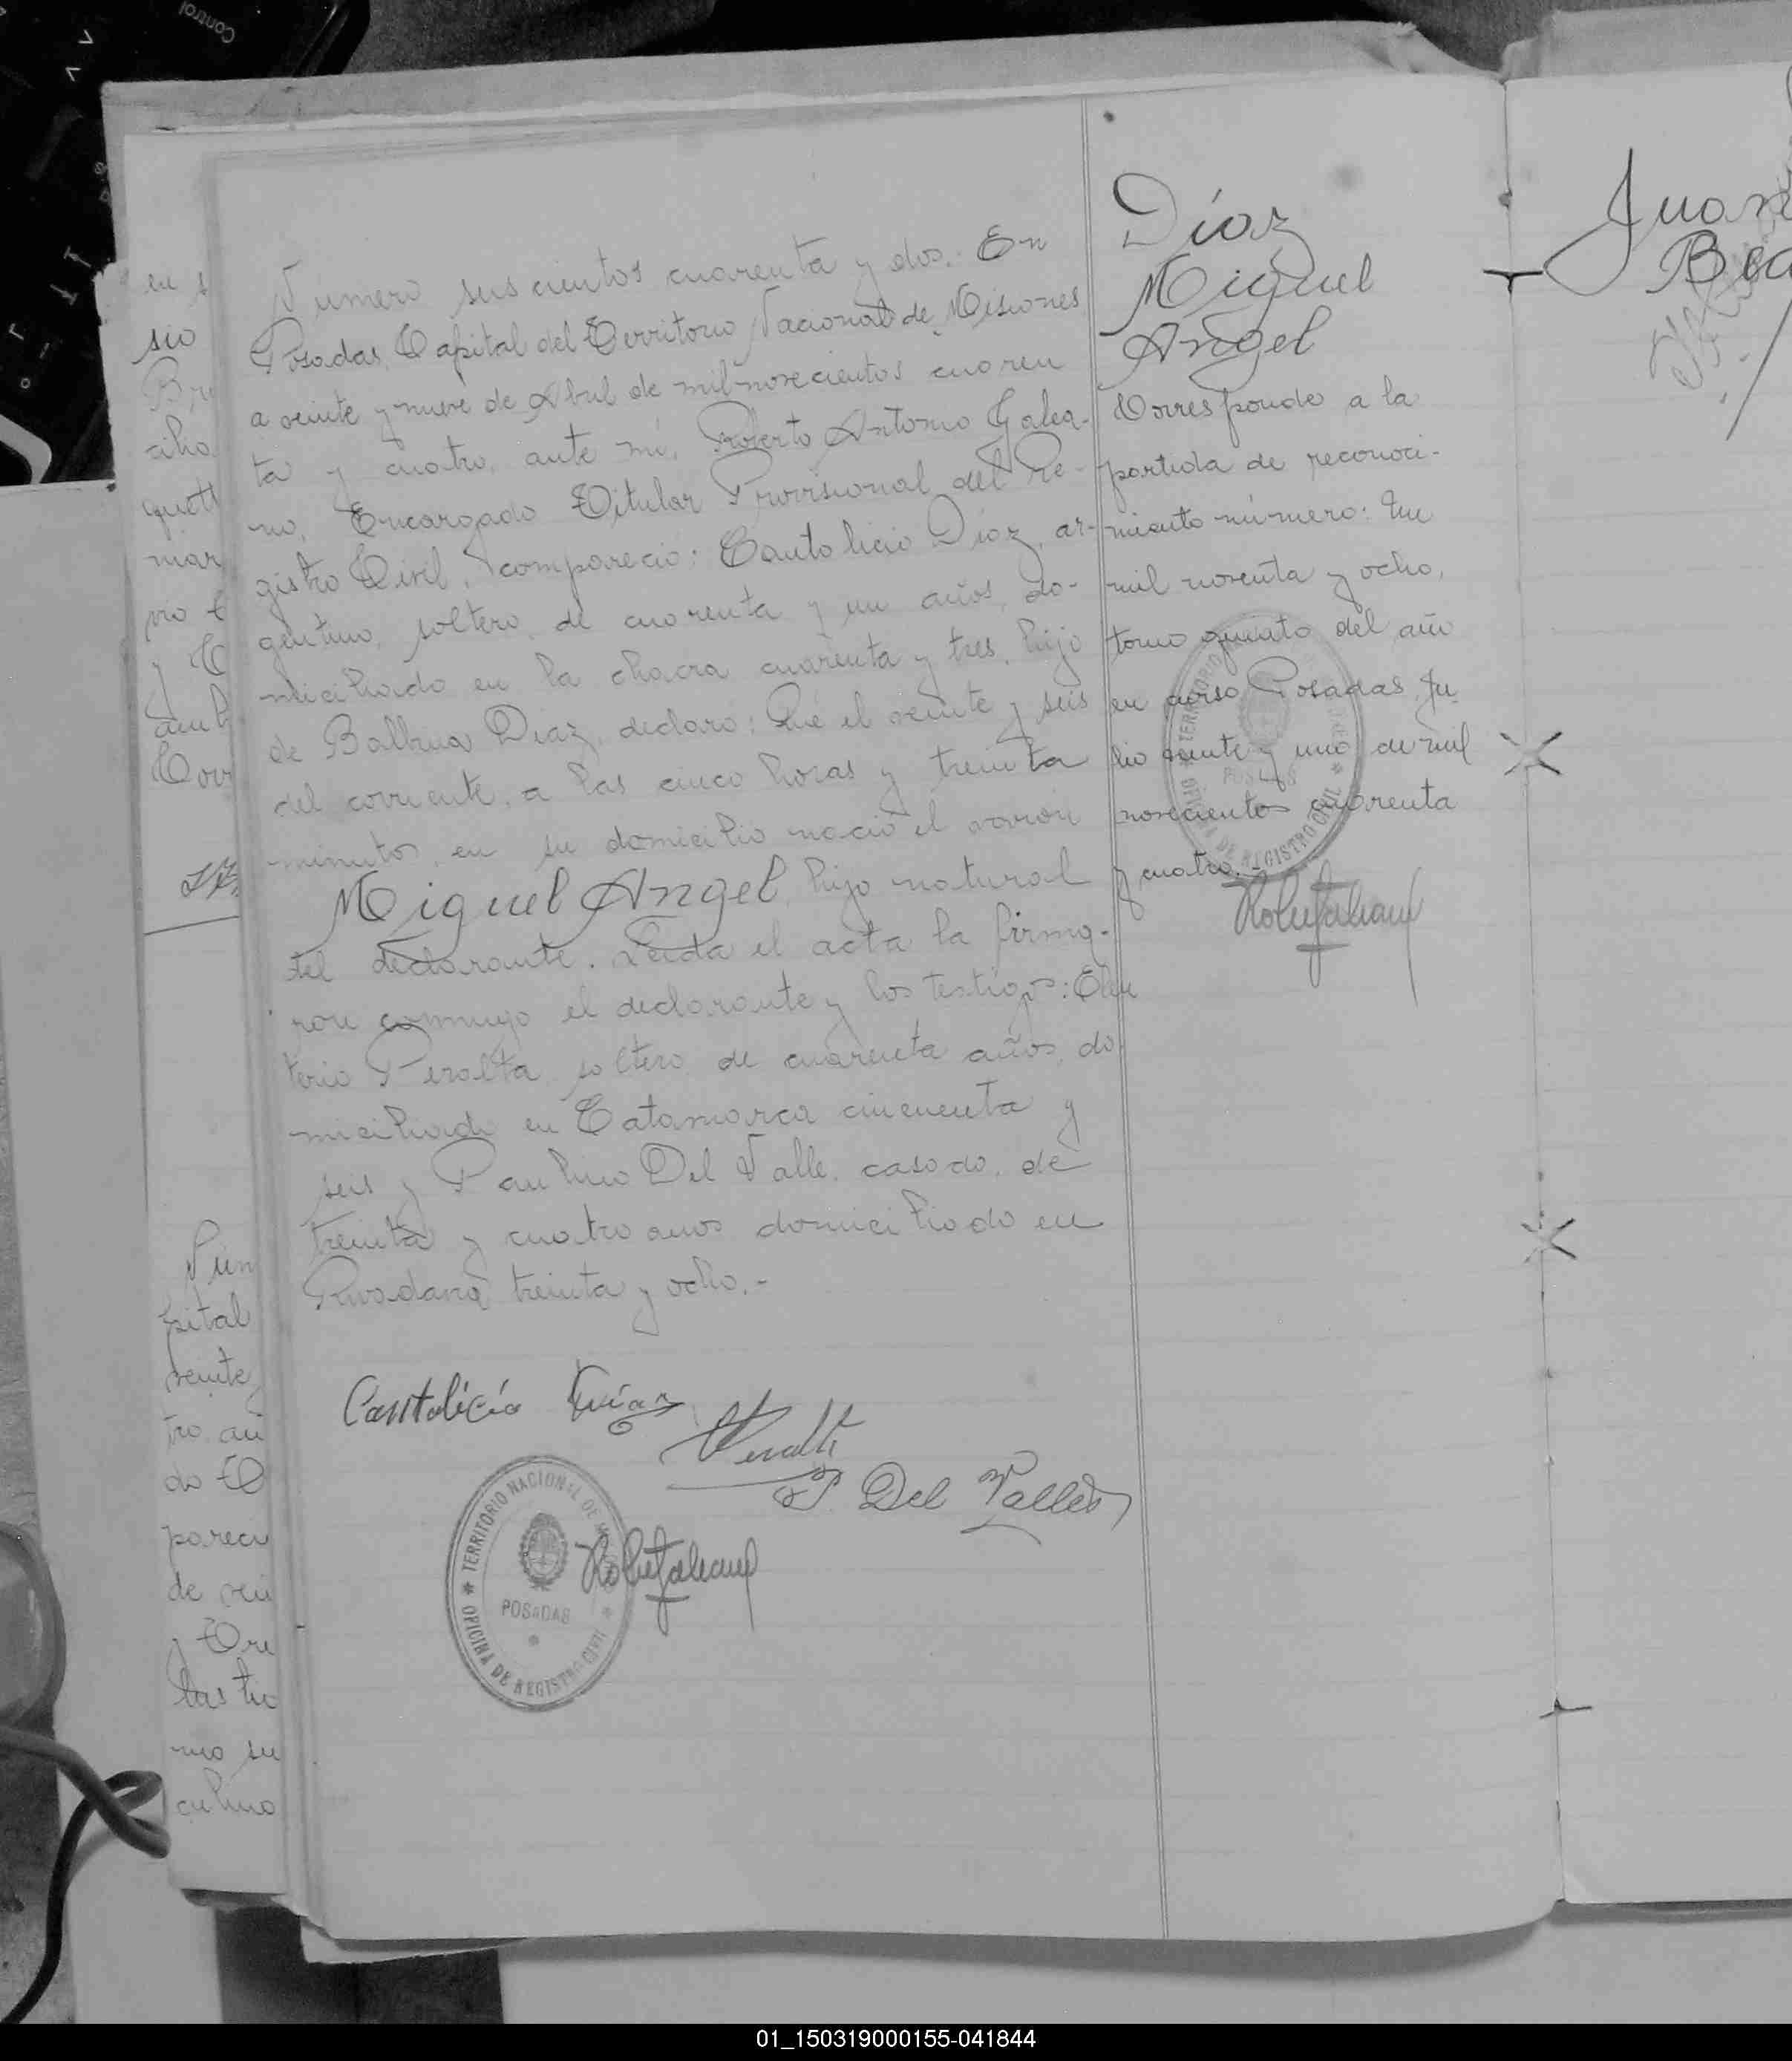 Control
Número seiscientos cuarenta y dos. En
Posadas, Capital del Territorio Nacional de Misiones
a veinte y nueve de Abril de mil novecientos cuaren
ta y cuatro, ante mí, Roberto Antonio Galea-
no, Encargado Titular Provisional del Re-
gistro Civil, compareció: Cantolicio Díaz, ar-
gentino, soltero, de cuarenta y un años, do-
miciliado en la chacra cuarenta y tres, hijo
de Balbina Díaz, declaró: Que el veinte y seis
del corriente, a las cinco horas y treinta
minutos, en su domicilio nació el varón
Miguel Angel, hijo natural
del declarante. Leida el acta la firma-
ron conmigo el declarante y los testigos: Eleu
terio Peralta, soltero, de cuarenta años, do
miciliado en Catamarca cincuenta y
seis y Paulino Del Valle, casado, de
treinta y cuatro años domiciliado en
Rivadavia treinta y ocho.-
Cantalicio Díaz
Peralta
P. Del Valle
TERRITORIO NACIONAL DE MISIONES
POSADAS
OFICINA DE REGISTRO CIVIL
Díaz
Miguel
Angel
Corresponde a la
partida de reconoci-
miento número: Un
mil noventa y ocho,
tomo quinto del año
en curso Posadas, Ju
lio veinte y uno de mil
novecientos cuarenta
y cuatro.-
TERRITORIO
POSADAS
OFICINA DE REGISTRO CIVIL
en s
sio
cilio
quett
mar
y
Núm
pital
veinte
tro, an
do
pareci
de vei
y Cre
las tre
mo su
culino
Juan
01_150319000155-041844